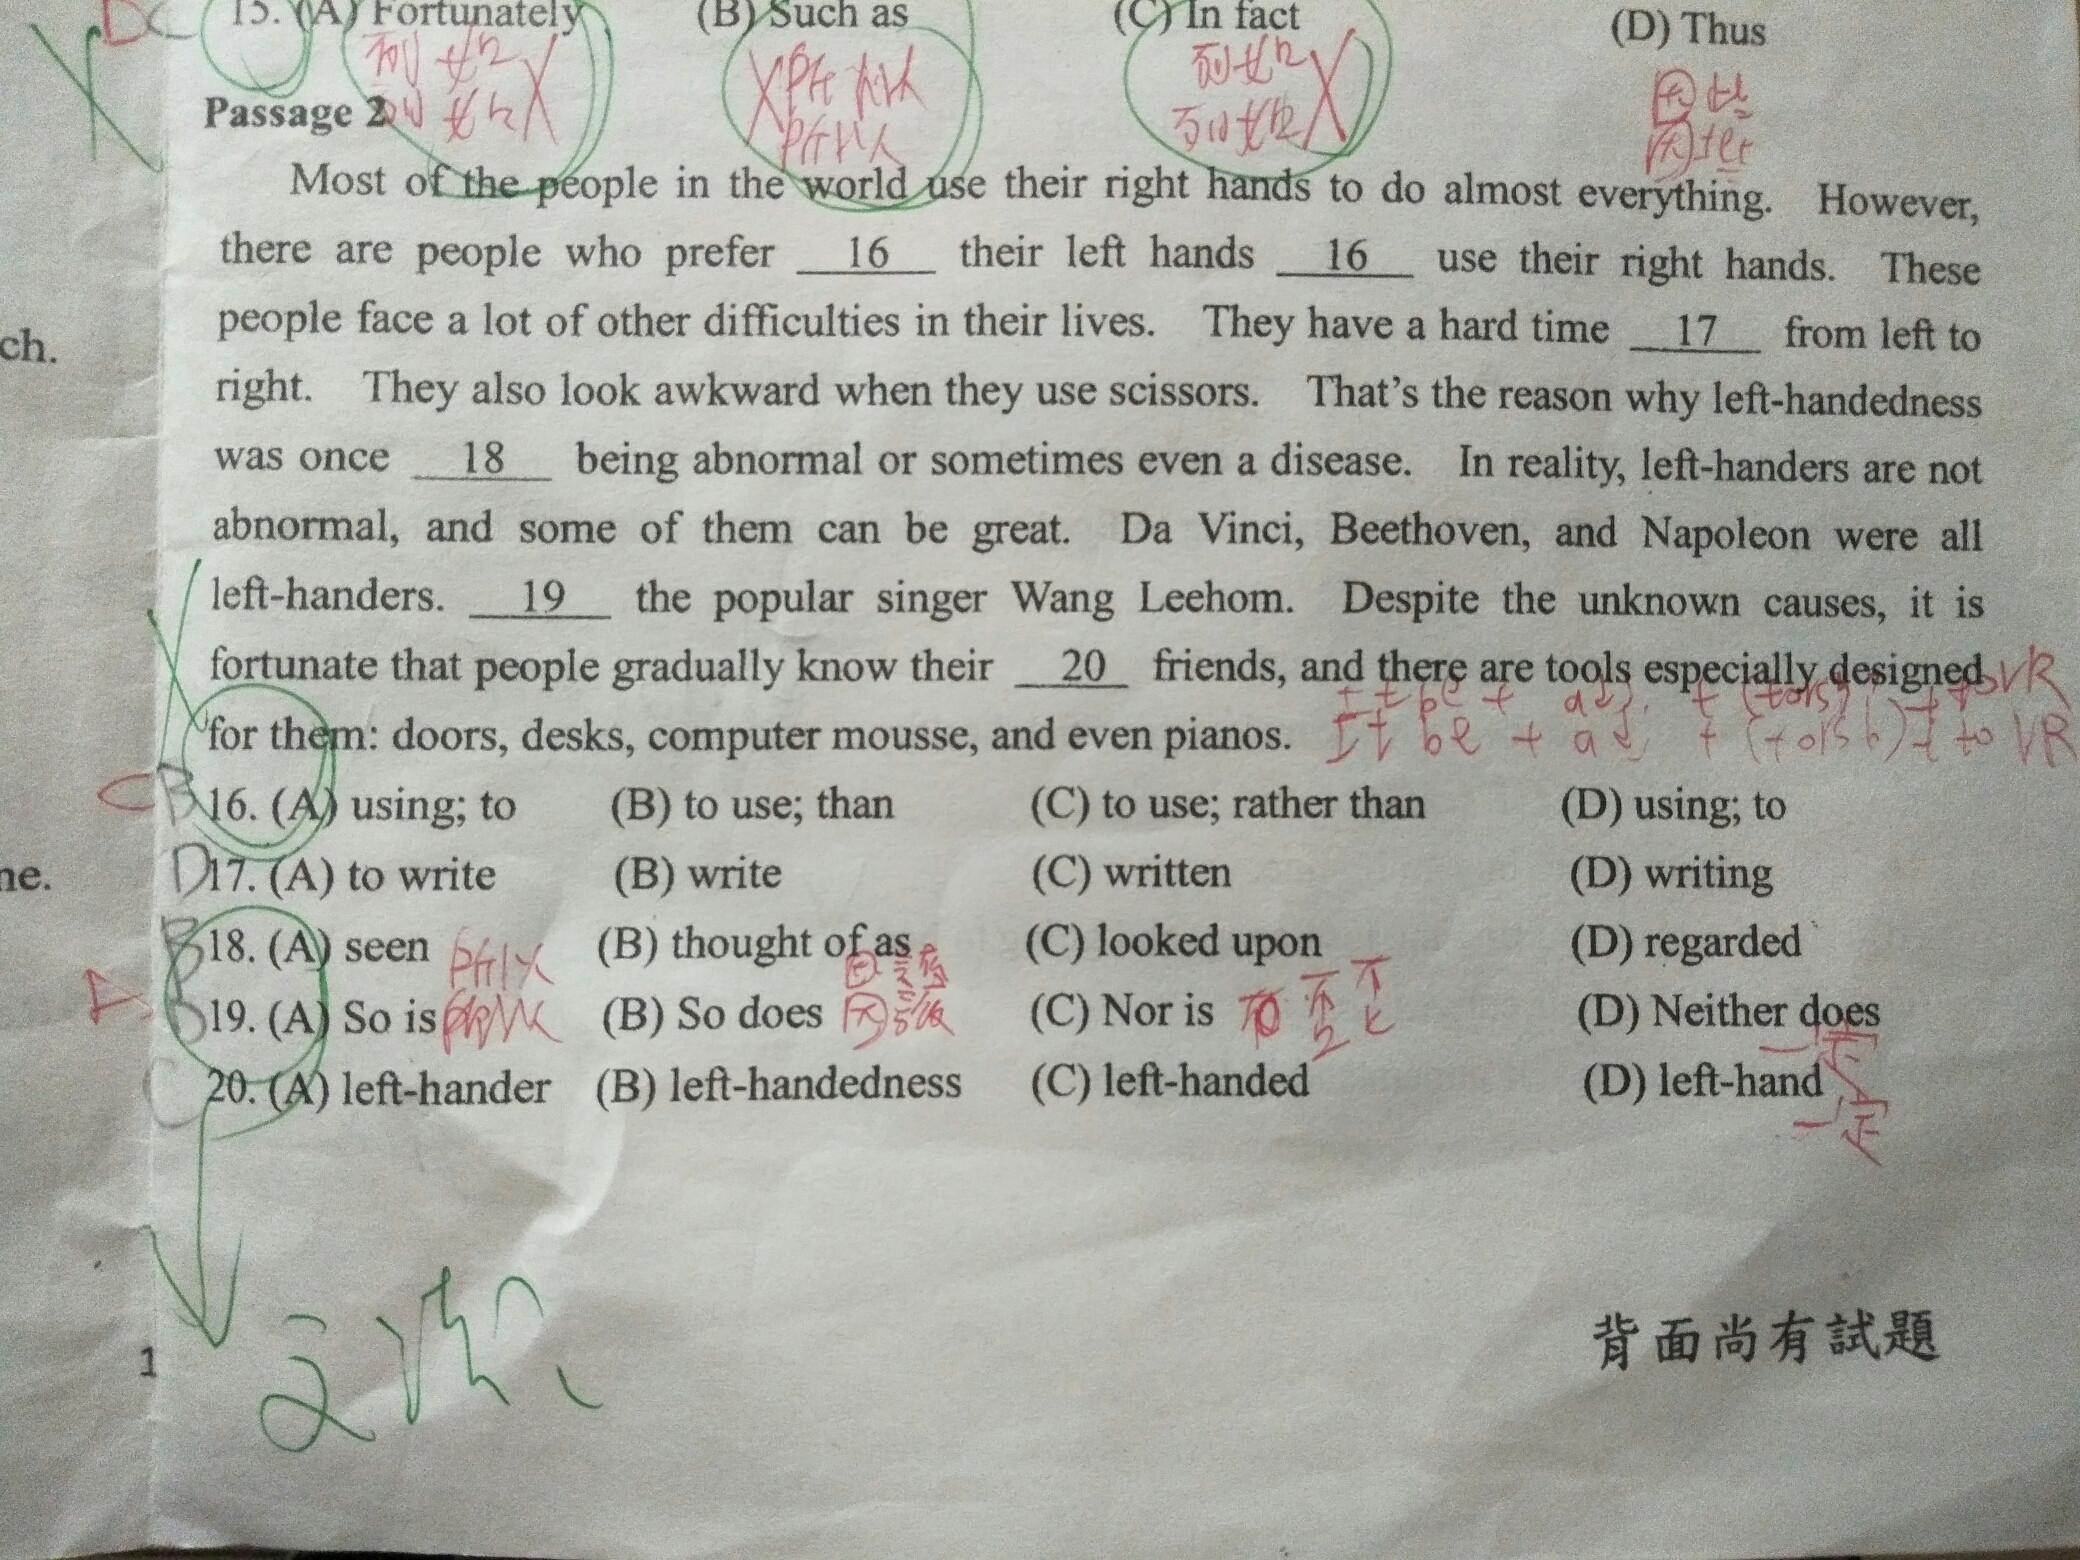 15. (A) Fortunately (B) Such as (C) In fact (D) Thus
Passage 2
Most of the people in the world use their right hands to do almost everything. However,
there are people who prefer 16 their left hands 16 use their right hands. These
people face a lot of other difficulties in their lives. They have a hard time 17 from left to
right. They also look awkward when they use scissors. That's the reason why left-handedness
was once 18 being abnormal or sometimes even a disease. In reality, left-handers are not
abnormal, and some of them can be great. Da Vinci, Beethoven, and Napoleon were all
left-handers. 19 the popular singer Wang Leehom. Despite the unknown causes, it is
fortunate that people gradually know their 20 friends, and there are tools especially designed
for them: doors, desks, computer mousse, and even pianos.
It be + adj. + (for sb) + to VR
C B 16. (A) using; to (B) to use; than (C) to use; rather than (D) using; to
D 17. (A) to write (B) write (C) written (D) writing
B 18. (A) seen (B) thought of as (C) looked upon (D) regarded
A 19. (A) So is (B) So does (C) Nor is (D) Neither does
C 20. (A) left-hander (B) left-handedness (C) left-handed (D) left-hand
ch.
ne.
1
背面尚有試題